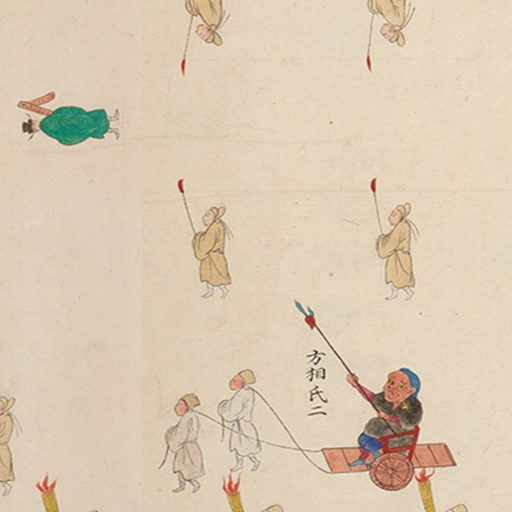 方相氏二